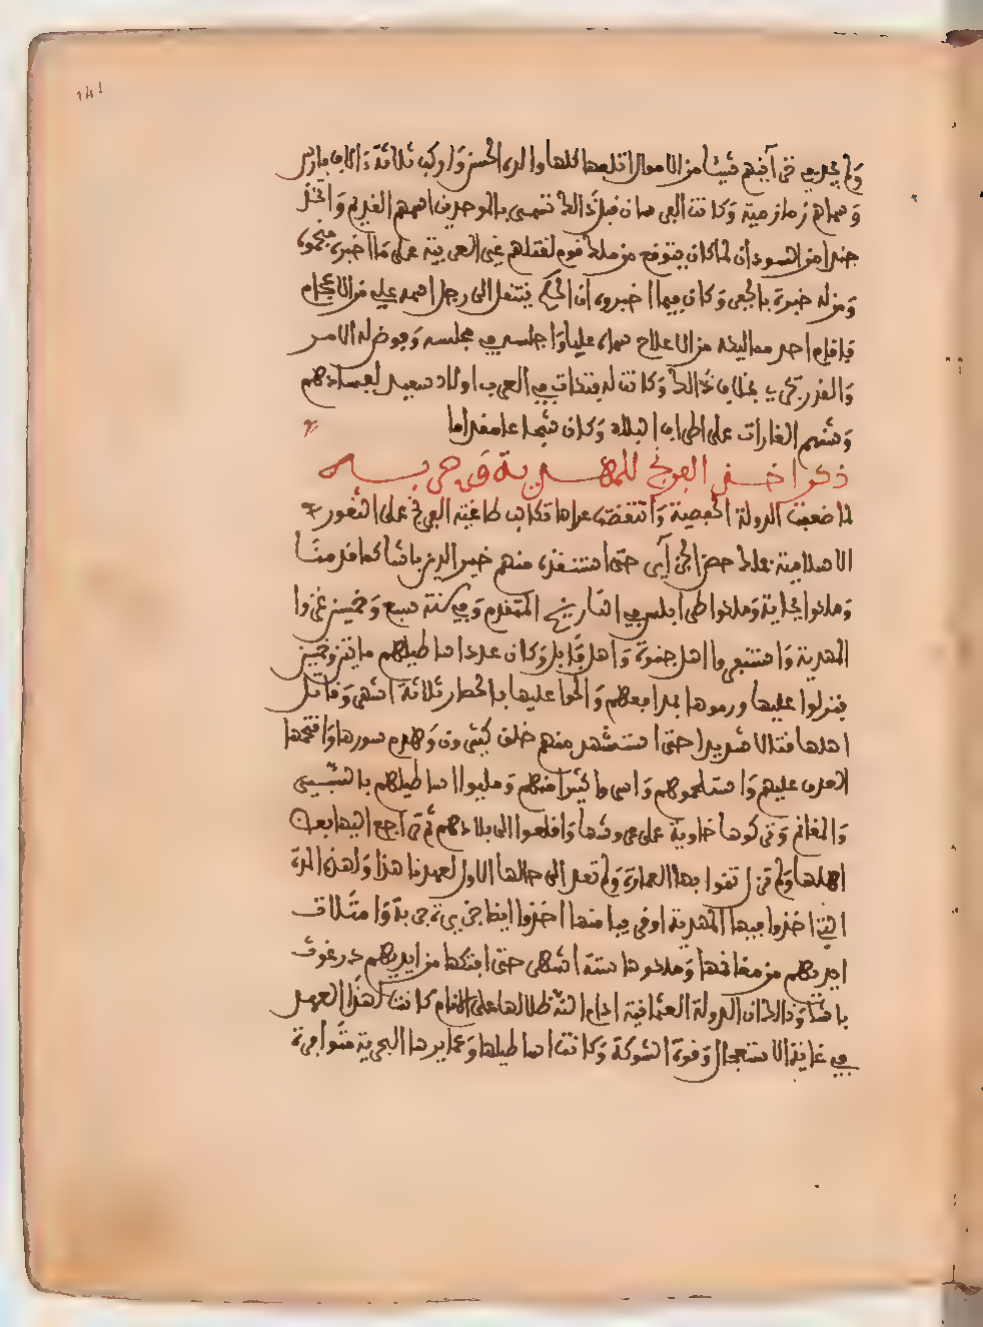 141
ولم يجد في آخرهم شيئا من الاموال اقلعها كلها والده الحسن واركب ثلاثة ءالاف فارس
وسماهم زمازمية وكانت العرب قبل ذلك تسمى بالموحدين اسمهم القديم واتخذ
جندا من السودان لما كان يتوقع من ملك قوم لقتلهم غير العربية على ما اخبره منجموه
ومن له خبرة بالجفر وكان فيما اخبروه ان الحكم ينتقل الى رجل اسمه علي من الاعجام
فاقام احد مماليكه من الاعلاج سماه عليا واجلسه في مجلسه وفوض له الامر
والقدر يجري بخلاف ذلك وكانت له فتكات في العرب اولاد سعيد لفسادهم
وشنهم الغارات على اطراف البلاد وكان شجاعا مقداما
ذكر اخذ الفرنج للمهدية وتخريبه
لما ضعفت الدولة الحفصية وانتقضت عراها تكالب طاغية الفرنج على الثغور
الاسلامية فملك حصن الجزاير حتى استنقذه منهم خير الدين باشا كما قدمنا
وملكوا بجاية وملكوا طرابلس في التاريخ المتقدم وفي سنة سبع وخمسين غزوا
المهدية واستنفروا اهل جنوة واهل وكان عدد اساطيلهم مايتين وخمسين
فنزلوا عليها ورموها بمدافعهم والحوا عليها بالحصار ثلاثة اشهر وقاتل
اهلها قتالا شديدا حتى استشهد منهم خلق كثيرون وهدم سورها واقتحمها
العدو عليهم واستلحموهم واسروا كثيرا منهم وملؤوا اساطيلهم بالسبي
والمغانم وتركوها خاوية على عروشها واقلعوا الى بلادهم ثم تراجع اليها بعض
اهلها ولم تزل تنوا بها العمارة ولم تعد الى حالها الاول لعهدنا هذا ولهذه المرة
التي اخذوا فيها المهدية او قريبا منها اخذوا ايضا جزيرة جربة وامتلات
ايديهم من مغانمها وملكوها ستة اشهر حتى افتكها من ايديهم درغوث
باشا وذلك ان الدولة العثمانية ادام الله ظلالها على الانام كانت لهذا العهد
في غاية الاستفحال وقوة الشوكة وكانت اساطيلها وعمايرها البحرية متوافرة